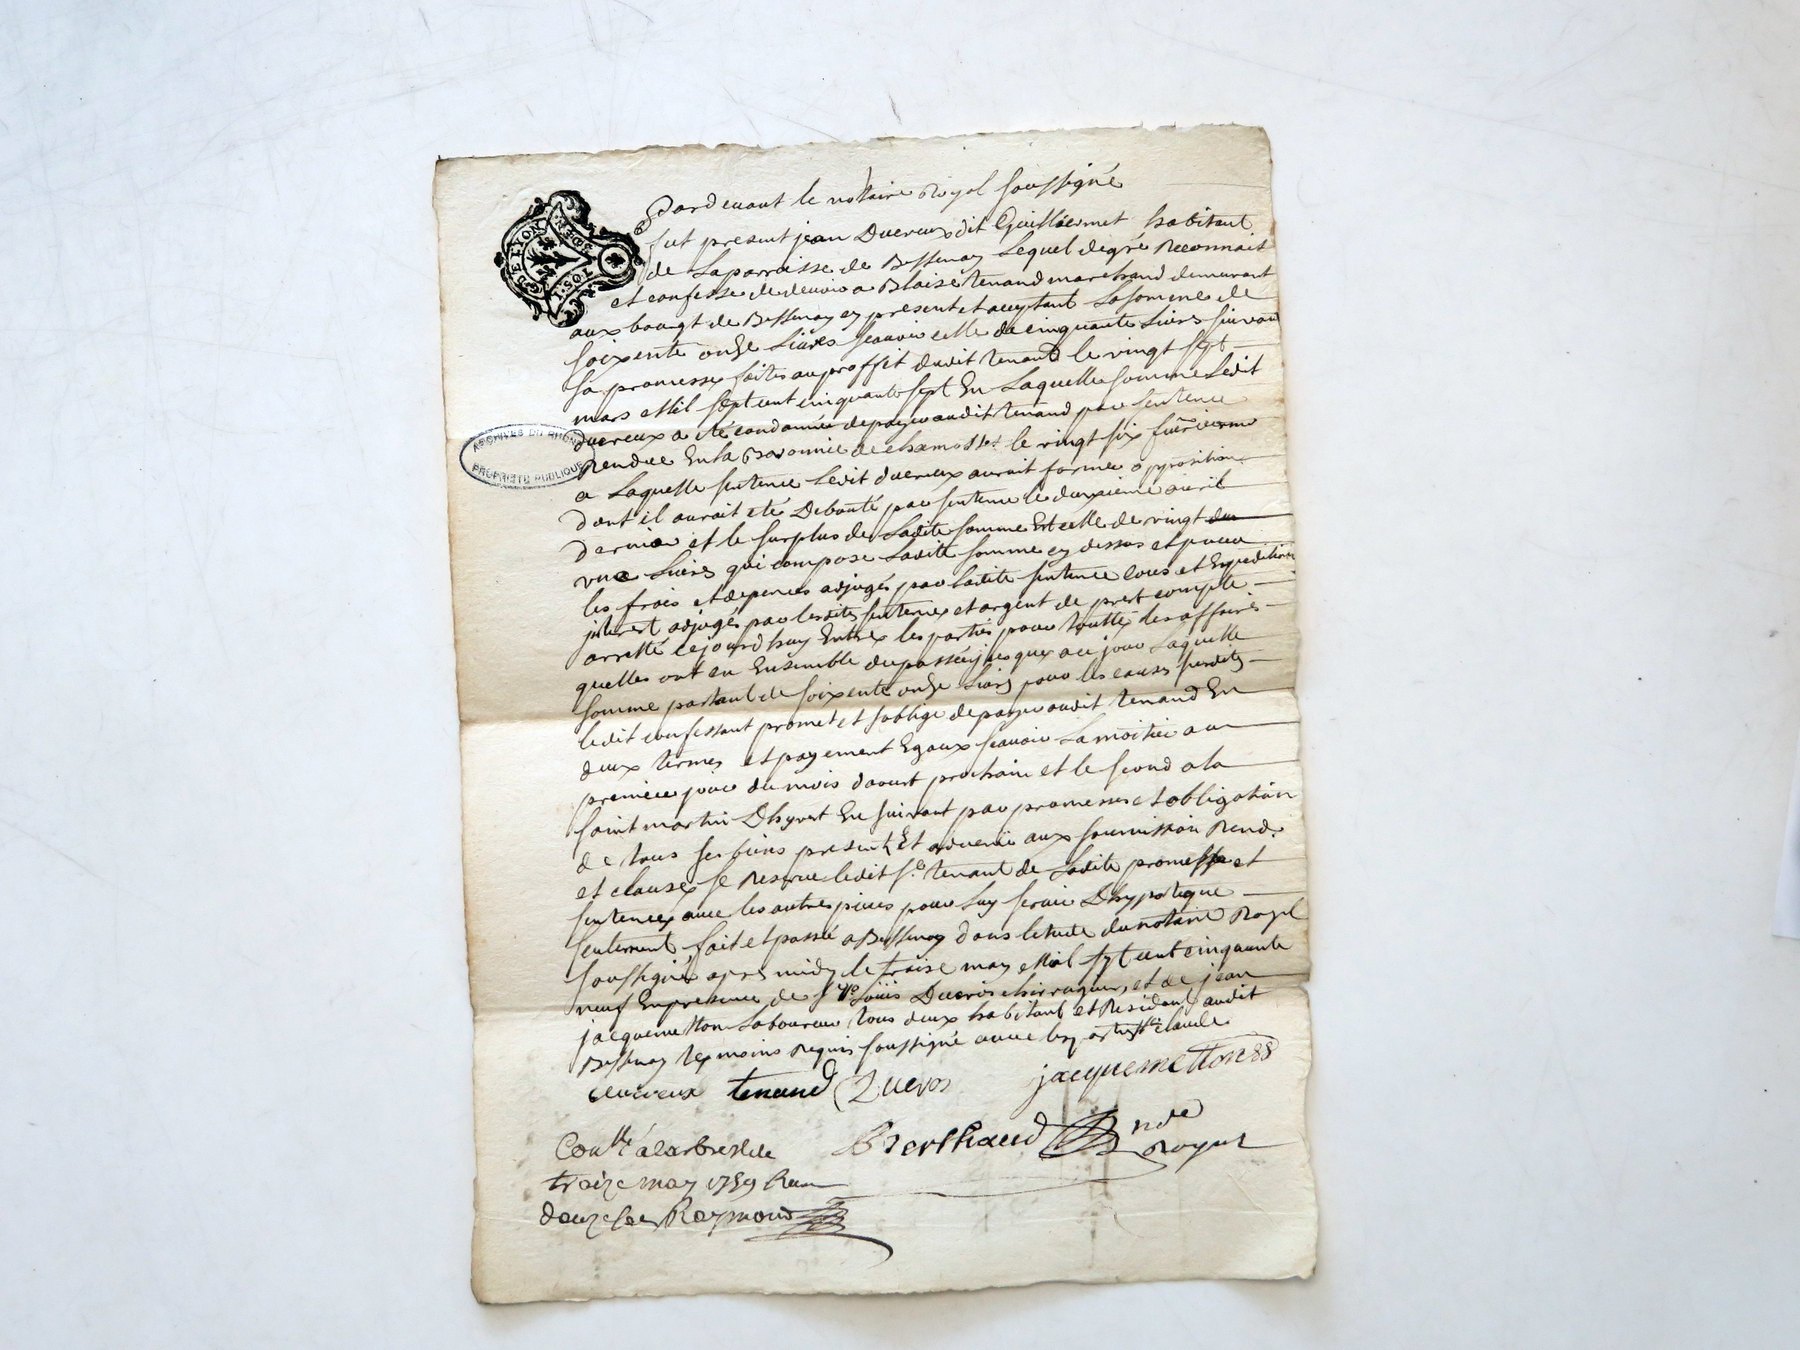 GE LYON
1 SOL
ARCHIVES DU RHÔNE
PROPRIÉTÉ PUBLIQUE
Pardevant le nottaire Royal soussigné
fut present jean Ducreux dit Guilliermet habitant
de Laparroisse de Bessenay Lequel degré Reconnait
et confesse de devoir a Blaise tenand marchand demeurant
aux bourgt de Bessenay ey present et acceptant Lasomme de
soixente onze Livres scavoir celle de cinquante Livres suivant
sa promesse faites au proffit dudit tenand le vingt sept
mars mil sept cent cinquante sept En Laquelle somme Ledit
ducreux a été condamné de payer audit tenand par sentence
Rendue En la Baronnie de chamosset le vingt six
a Laquelle sentence Ledit ducreux auroit formé opposition
dont il auroit eté Debouté par sentence le deuxieme avril
dernier et le surplus de Ladite somme Est celle de vingt
une Livres qui compose Ladite somme ey dessus et pour
les frais et depences adjugés par Ladite sentence et Expedition
jnterest adjugés par lesdits sentences et argent de prest compte
arretté cejourdhuy Entre les parties pour toutte les affaires
quelles ont eu Ensemble du passée jusques a ce jour Laquelle
somme partant de soixente onze Livres pour les causes susdites
ledit confessant promet et soblige de payer audit tenand En
deux termes et payement Egaux scavoir La moitier au
premier jour du mois daoust prochain et le second a la
saint martin Dhyvert En suivant par promesses et obligation
de tous ses biens present Et advenir aux soumission Rend.
et clauses se Reserve ledit s.r tenant de Ladite promesse et
sentences avec les autres pieces pour Luy servir Dhypoteque
seulement fait et passé a Bessenay dans letude du notaire Royal
soussigné apres midy le traise may mil sept cent cinquante
neuf En presence de s.r Louis Ducros chirurgien, et de jean
jacquemetton Laboureur tous deux habitant et Resident audit
Bessenay temoins Requis soussigné avec les parties
ducreux tenand Ducros jacquemetton
Berthaud nre
Royal
Conllé a larbresle le
traize may 1759 Reçu
douze sols Raymond